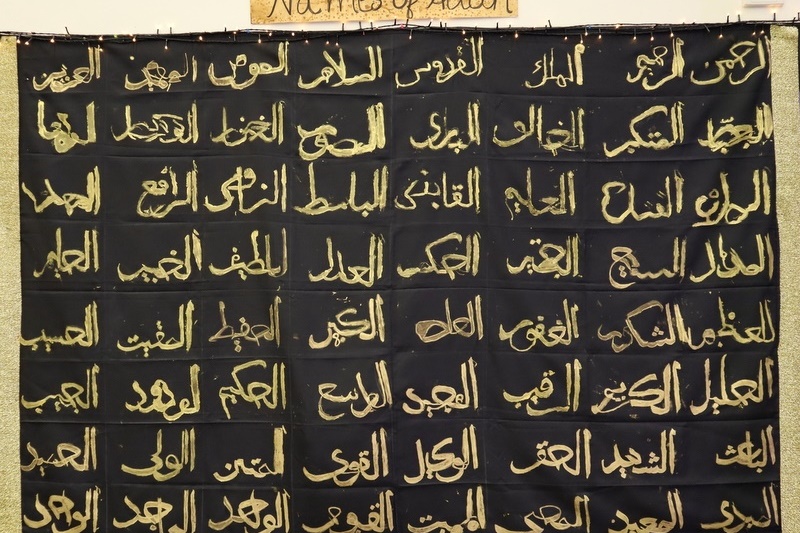 Names of Allah
الرحمن الرحيم الملك القدوس السلام المؤمن المهيمن العزيز
المتكبر الخالق البارئ المصور
الفتاح العليم القابض الباسط الرافع
السميع البصير الحكم العدل اللطيف الخبير الحليم
العظيم الشكور الغفور العلي الكبير الحفيظ المقيت الحسيب
الجليل الكريم الرقيب المجيب الواسع الحكيم الودود المجيد
الباعث الشهيد الحق الوكيل القوى المتين الولى الحميد
المبدئ المعيد المحيي المميت القيوم الواجد الماجد الواحد